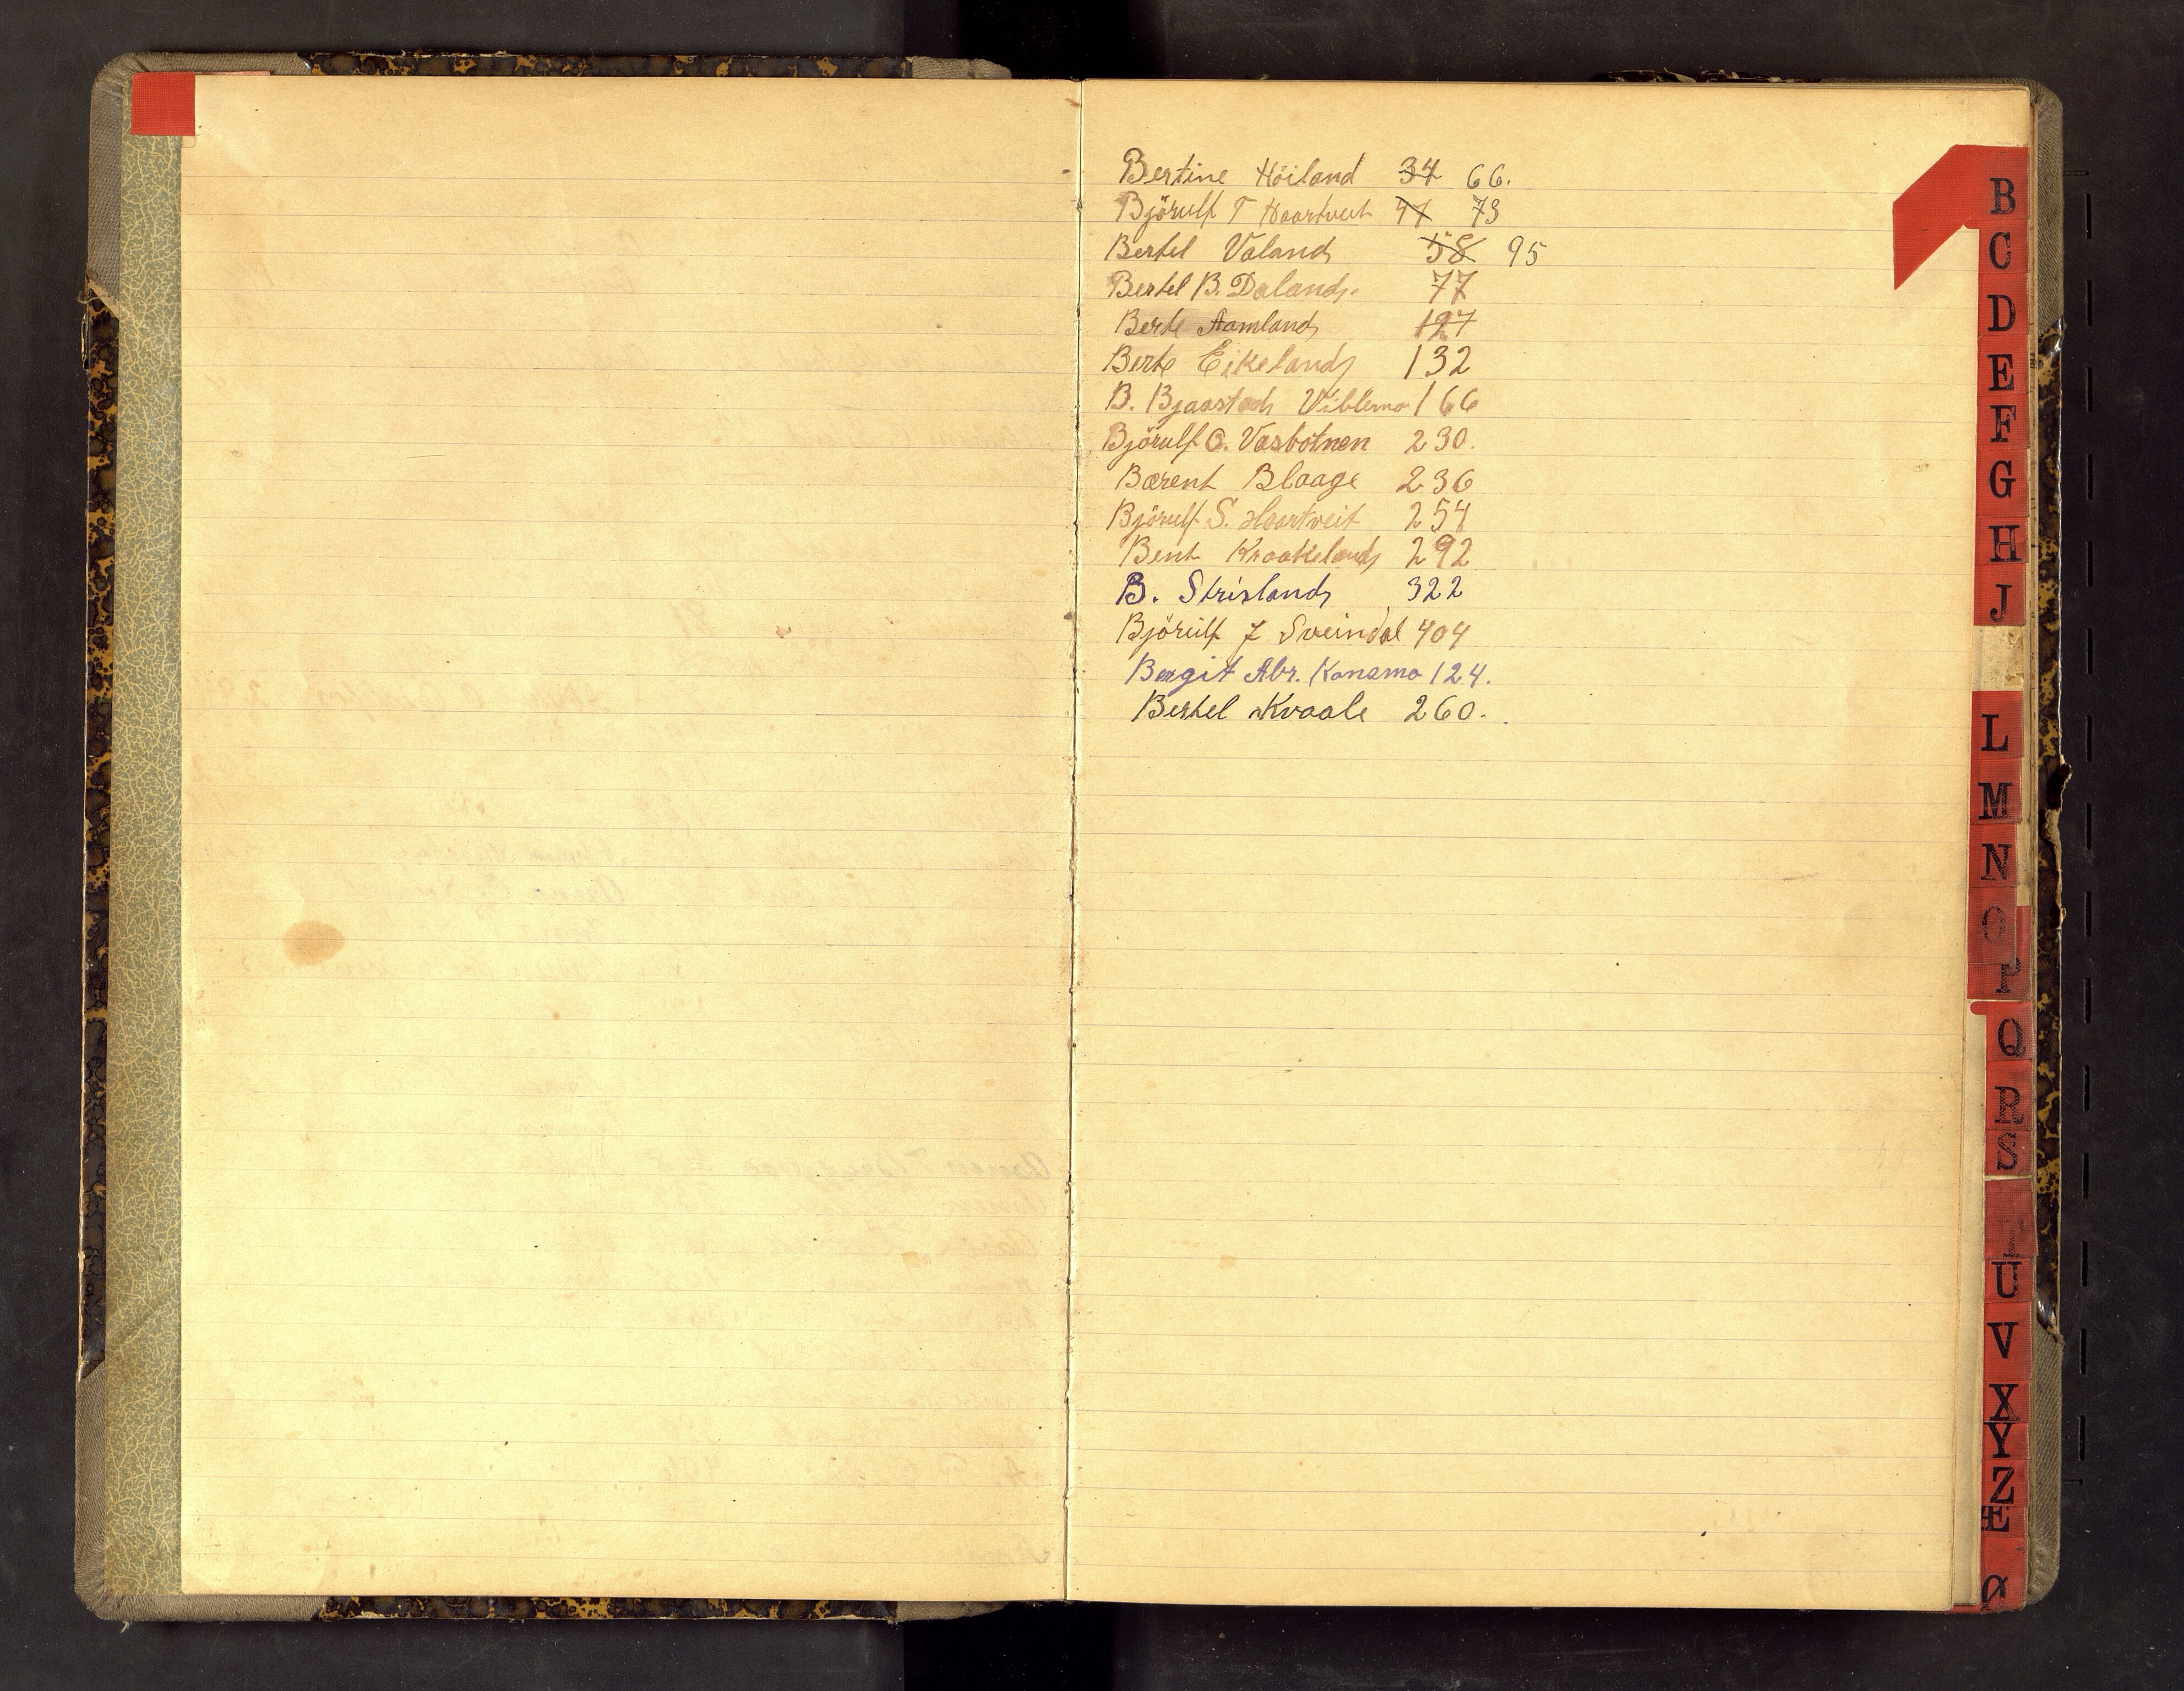 Bertine Höiland 34 66.
Björulf T Haartveit 47 73
Bertel Valand 58 95
Bertel B. Daland. 77
Berte Aamland 127
Berte Eikeland 132
B. Bjaastad Viblemo 166
Björulf O. Vasbotnen 230.
Bærent Blaage 236
Björulf S. Haartveit 254
Bent Kraakeland 292
B. Strisland 322
Björulf J Sveindal 404
Bergit Abr. Konsmo 124.
Bertel Kvaale 260.
B
C
D
E
F
G
H
J
L
M
N
O
P
Q
R
S
T
U
V
X
Y
Z
Æ
Ø